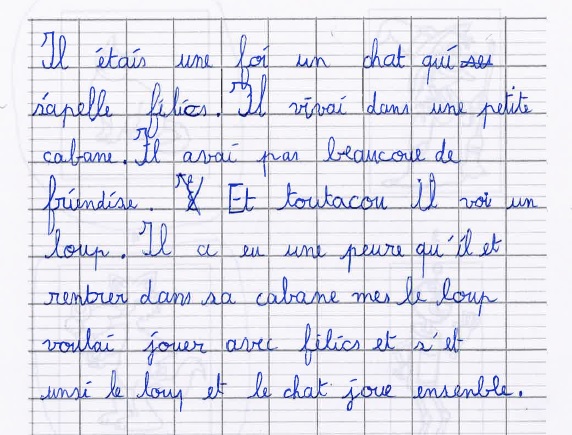 Il étais une foi un chat qui
s'apelle félics. Il vivai dans une petite
cabane. Il avai pas beaucoue de
friendise. Et toutacou il voi un
loup. Il a eu une peure qu'il et
rentrer dans sa cabane mes le loup
voulai jouer avec félics et s'et
unsi le loup et le chat joue ensenble.